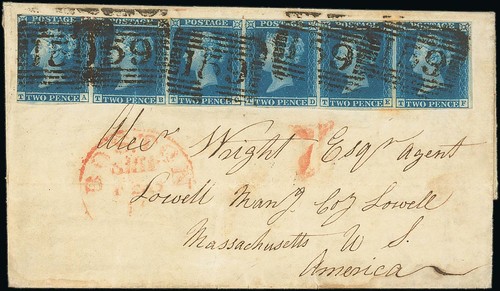 POSTAGE POSTAGE POSTAGE POSTAGE POSTAGE POSTAGE
159 159 159
T TWO PENCE A T TWO PENCE B T TWO PENCE C T TWO PENCE D T TWO PENCE E T TWO PENCE F
Alexr Wright Esqr agent
Lowell Manf Coy Lowell
Massachusetts U S.
America
BOSTON
SHIP
7